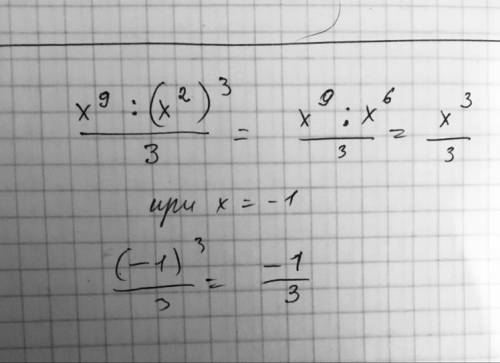 (x^9 : (x^2)^3)/3 = (x^9 : x^6)/3 = x^3/3
при x = -1
(-1)^3/3 = -1/3